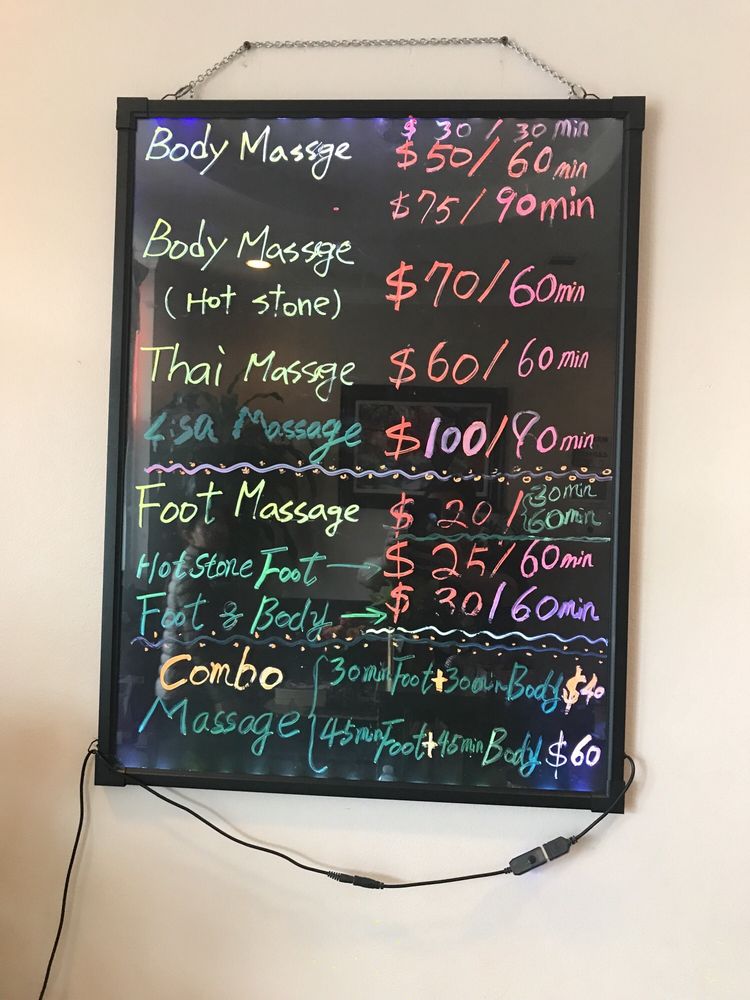 $ 30 / 30 min
Body Massge $50/ 60 min
$75/ 90min
Body Massge
(Hot stone) $70/ 60min
Thai Massge $60/ 60min
Lisa Massage $100/90min
Foot Massage $ 20 / 30min
60min
Hot Stone Foot → $ 25/60min
Foot & Body → $ 30/60min
Combo 30min Foot+30min Body $40
Massage 45min Foot+45min Body $60